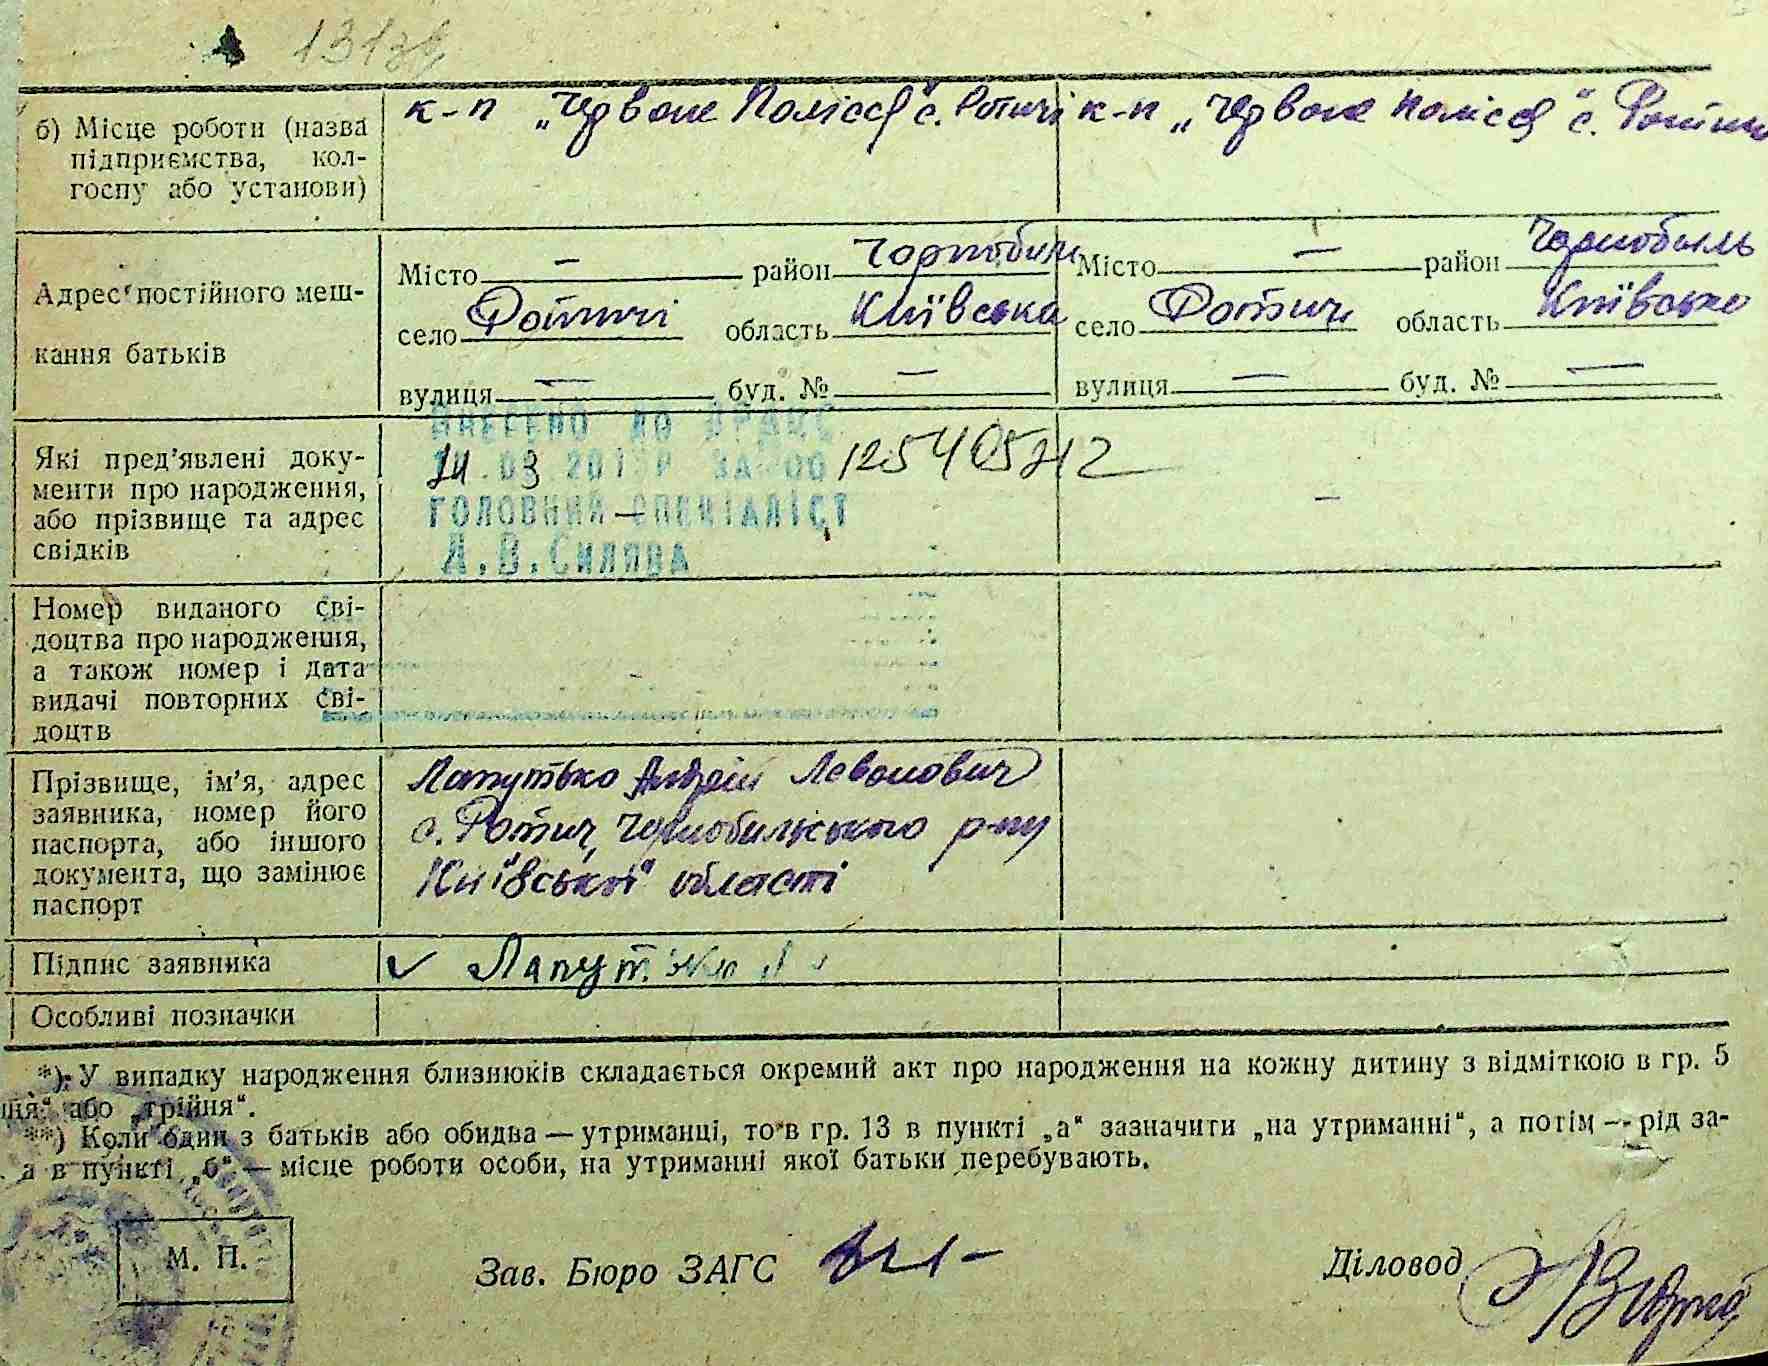 131
б) Місце роботи (назва підприємства, колгоспу або установи)
к-п „Червоне Полісся" с. Ротичі
к-п „Червоне Полісся" с. Ротичі
Адрес постійного мешкання батьків
Місто — район Чорнобиль
село Ротичі область Київська
вулиця — буд. № —
Місто — район Чорнобыль
село Ротичі область Київська
вулиця — буд. № —
Які пред'явлені документи про народження, або прізвище та адрес свідків
ВНЕСЕНО ДО ДРАЦС
ЗА №00 12540572
ГОЛОВНИЙ СПЕЦІАЛІСТ
—
Номер виданого свідоцтва про народження, а також номер і дата видачі повторних свідоцтв
Прізвище, ім'я, адрес заявника, номер його паспорта, або іншого документа, що замінює паспорт
Лапутько Андрій Левонович
с. Ротич, Чорнобильського р-ну
Київської області
Підпис заявника
Особливі позначки
*) У випадку народження близнюків складається окремий акт про народження на кожну дитину з відміткою в гр. 5
або „трійня".
**) Коли один з батьків або обидва — утриманці, то в гр. 13 в пункті „а" зазначити „на утриманні", а потім — рід за-
а в пункті „б" — місце роботи особи, на утриманні якої батьки перебувають.
М. П.
Зав. Бюро ЗАГС
Діловод